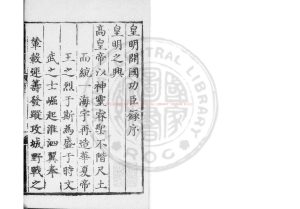 皇明開國功臣錄序
皇明之興
高皇帝以神靈睿聖不階尺土
而統一海宇再造華夏帝
王之烈于斯為盛于時文
武之士崛起淮泗翼奉
輦轂運籌發蹤攻城野戰之
LIBRARY